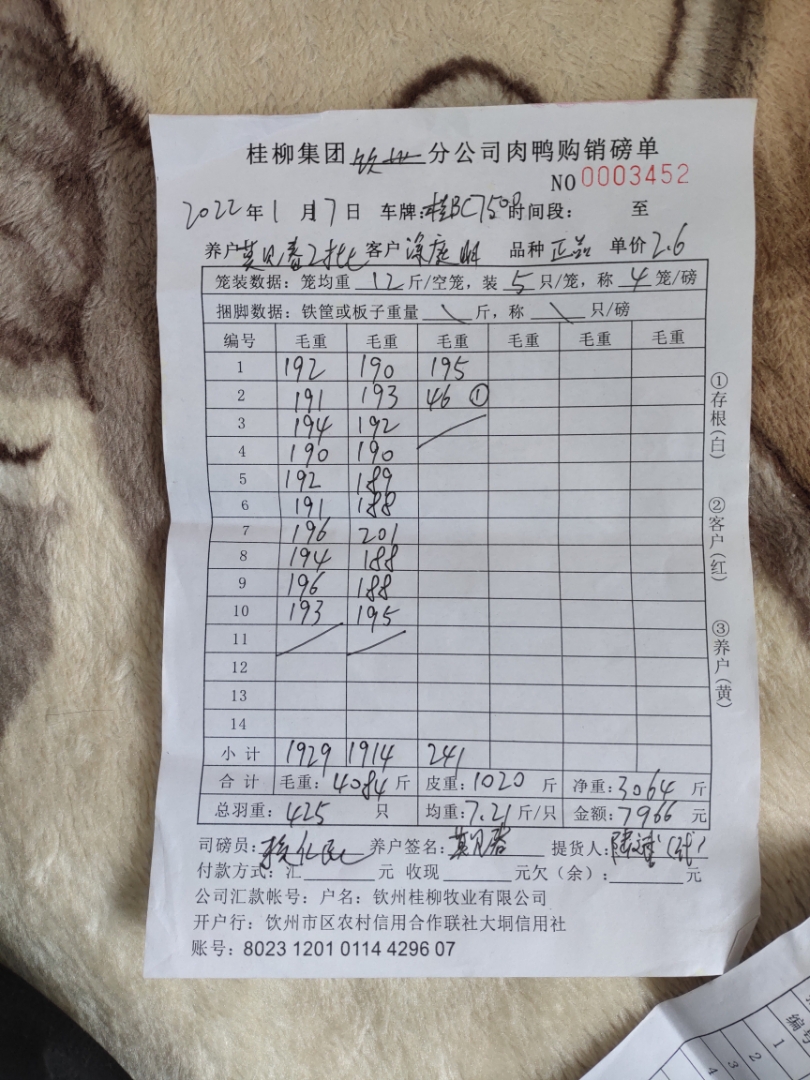 桂柳集团钦州分公司肉鸭购销磅单
NO 0003452
2022年1月7日 车牌:桂BC750P时间段: 至
养户 客户 品种 正品 单价2.6
笼装数据:笼均重 12 斤/空笼,装 5 只/笼,称 4 笼/磅
捆脚数据:铁筐或板子重量 \ 斤,称 \ 只/磅
编号 毛重 毛重 毛重 毛重 毛重 毛重
1 192 190 195
2 191 193 46 ①
3 194 192
4 190 190
5 192 189
6 191 188
7 196 201
8 194 188
9 196 188
10 193 195
11
12
13
14
小计 1929 1914 241
合计 毛重:4084斤 皮重:1020斤 净重:3064斤
总羽重:425只 均重:7.21斤/只 金额:7966元
司磅员: 养户签名: 提货人:
付款方式:汇 元 收现 元欠(余): 元
公司汇款帐号:户名:钦州桂柳牧业有限公司
开户行:钦州市区农村信用合作联社大垌信用社
账号:8023 1201 0114 4296 07
①存根(白)
②客户(红)
③养户(黄)
编号
1
2
3
4